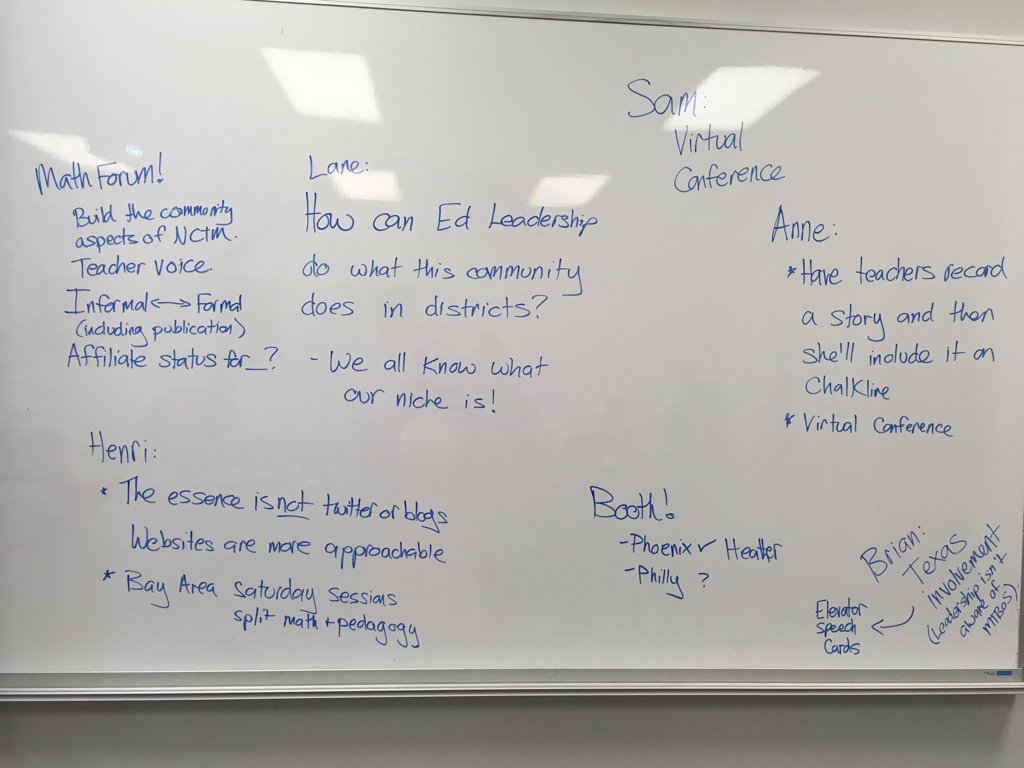 Math Forum!
Build the community
aspects of NCTM.
Teacher voice.
Informal <-> Formal
(including publication)
Affiliate status for __?
Lane:
How can Ed Leadership
do what this community
does in districts?
- We all know what
our niche is!
Sam:
Virtual
Conference
Anne:
* Have teachers record
a story and then
she'll include it on
Chalkline
* Virtual Conference
Henri:
* The essence is not twitter or blogs
Websites are more approachable
* Bay Area Saturday Sessions
split math + pedagogy
Booth!
- Phoenix ✓ Heather
- Philly ?
Brian:
Texas
involvement
(Leadership isn't
aware of
MTBoS).
Elevator
speech
Cards